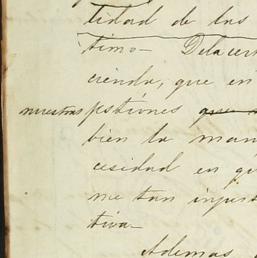 tidad de las
timo— Dela cer
cienda, que en
nuestras gestiones que
bien la man
cesidad en q
me tan injus
tiva—
Ademas